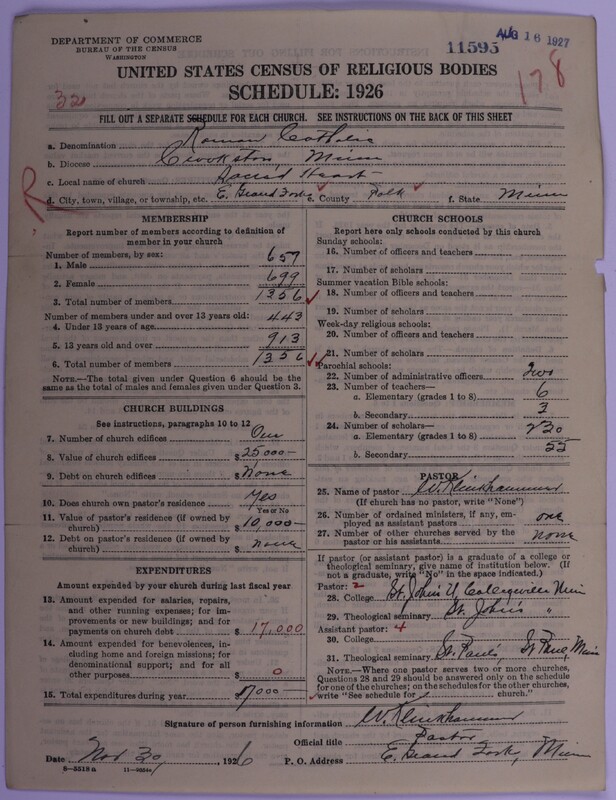 DEPARTMENT OF COMMERCE
BUREAU OF THE CENSUS
WASHINGTON
11595
AUG 16 1927
178
32
UNITED STATES CENSUS OF RELIGIOUS BODIES
SCHEDULE: 1926
FILL OUT A SEPARATE SCHEDULE FOR EACH CHURCH. SEE INSTRUCTIONS ON THE BACK OF THIS SHEET
R
a. Denomination Roman Catholic
b. Diocese Crookston Minn
c. Local name of church Sacred Heart
d. City, town, village, or township, etc. E. Grand Forks e. County Polk f. State Minn
MEMBERSHIP
Report number of members according to definition of member in your church
Number of members, by sex:
1. Male 657
2. Female 699
3. Total number of members 1356
Number of members under and over 13 years old:
4. Under 13 years of age 443
5. 13 years old and over 913
6. Total number of members 1356
NOTE.—The total given under Question 6 should be the same as the total of males and females given under Question 3.
CHURCH BUILDINGS
See instructions, paragraphs 10 to 12
7. Number of church edifices One
8. Value of church edifices $ 25000—
9. Debt on church edifices $ None
10. Does church own pastor's residence Yes
Yes or No
11. Value of pastor's residence (if owned by church) $ 10,000—
12. Debt on pastor's residence (if owned by church) $ none
EXPENDITURES
Amount expended by your church during last fiscal year
13. Amount expended for salaries, repairs, and other running expenses; for improvements or new buildings; and for payments on church debt $ 17,000
14. Amount expended for benevolences, including home and foreign missions; for denominational support; and for all other purposes $ 0
15. Total expenditures during year $ 17000—
CHURCH SCHOOLS
Report here only schools conducted by this church
Sunday schools:
16. Number of officers and teachers
17. Number of scholars
Summer vacation Bible schools:
18. Number of officers and teachers
19. Number of scholars
Week-day religious schools:
20. Number of officers and teachers
21. Number of scholars
Parochial schools:
22. Number of administrative officers Two
23. Number of teachers—
a. Elementary (grades 1 to 8) 6
b. Secondary
24. Number of scholars—
a. Elementary (grades 1 to 8) 230
b. Secondary 55
PASTOR
25. Name of pastor W. Klinkhammer
(If church has no pastor, write "None")
26. Number of ordained ministers, if any, employed as assistant pastors one
27. Number of other churches served by the pastor or his assistants none
If pastor (or assistant pastor) is a graduate of a college or theological seminary, give name of institution below. (If not a graduate, write "No" in the space indicated.)
Pastor: 2
28. College St. John's U. Collegeville Min
29. Theological seminary St. John's "
Assistant pastor: 4
30. College
31. Theological seminary St. Paul's, St Paul, Minn
NOTE.—Where one pastor serves two or more churches, Questions 28 and 29 should be answered only on the schedule for one of the churches; on the schedules for the other churches, write "See schedule for church."
Signature of person furnishing information W. Klinkhammer
Official title Pastor
Date Nov 30, 1926 P. O. Address E. Grand Forks, Minn
8—5518 a